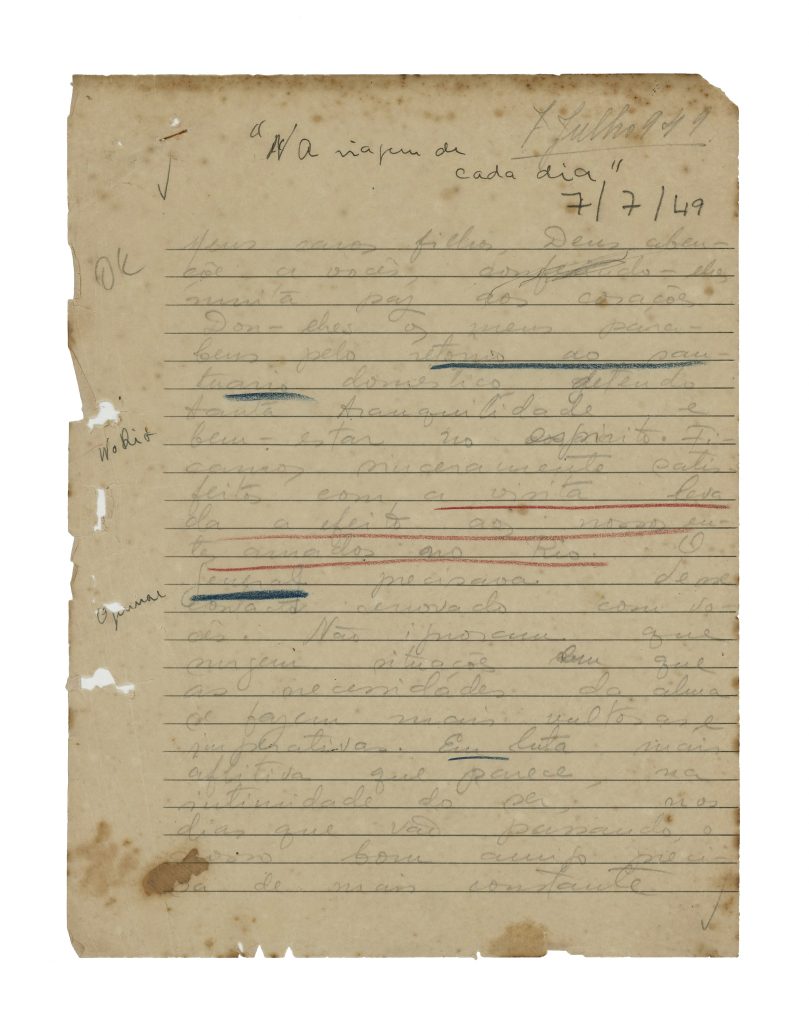 7 Julho 949
"Na viagem de
cada dia"
7/7/49
Meus caros filhos, Deus aben-
çõe a vocês, do-lhes
OK
muita paz aos corações
Dou-lhes os meus para-
bens pelo retorno ao san-
tuario domestico,
tanta tranquilidade, e
bem-estar no espirito. Fi-
No Rio
camos sinceramente satis-
feitos com a visita leva
da a efeito aos nossos en-
tes amados no Rio. O
General precisava desse
contacto renovado com vo-
cês. Não ignoram que
surgem situações em que
as necessidades da alma
se fazem mais vultosas e
imperativas. Em luta mais
aflitiva que parece, na
intimidade do ser, nos
dias que vão passando, o
nosso bom amigo preci-
sa de mais constante